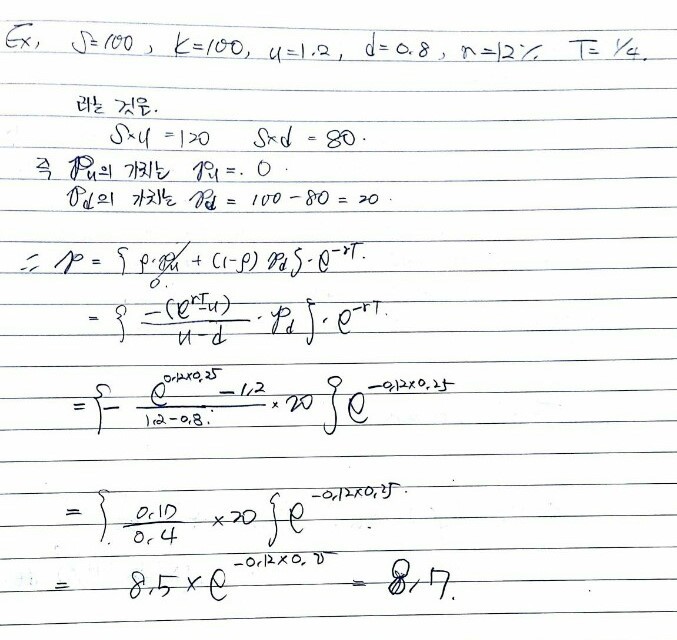 Ex, S=100, K=100, u=1.2, d=0.8, r=12% T=1/4.
라는 것은.
S×u =120 S×d = 80.
즉 Pu의 가치는 Pu=. 0.
Pd의 가치는 Pd = 100-80 = 20.
∴ P = { ρ·Pu + (1-ρ) Pd }·e^-rT.
0.
= { -(e^rT-u) / u-d · Pd }·e^-rT.
= { - e^0.12×0.25 - 1.2 / 1.2-0.8. × 20 } e^-0.12×0.25
= { 0.17 / 0.4 ×20 } e^-0.12×0.25.
= 8.5 × e^-0.12×0.25 = 8.7.